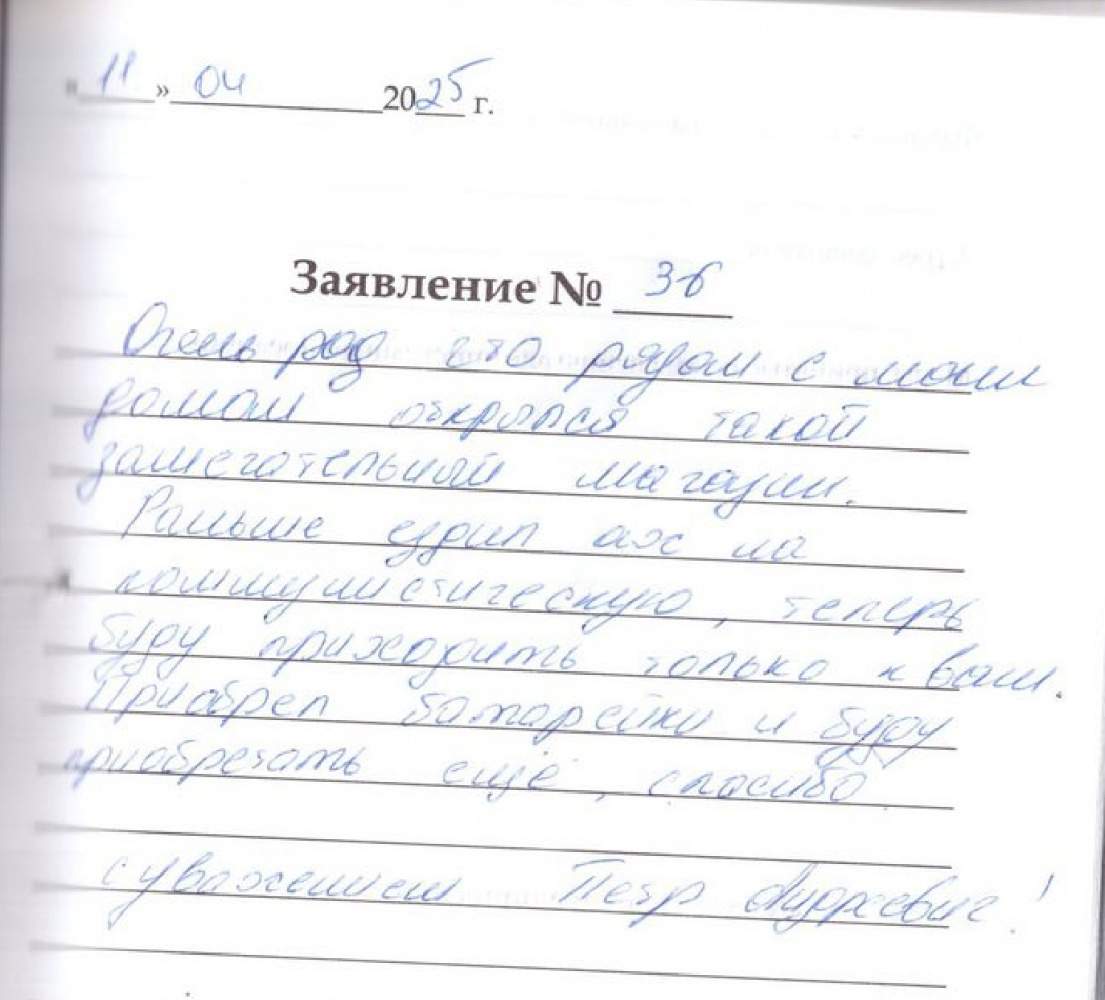 « 11 » 04 2025 г.
Заявление № 36
Очень рад что рядом с моим
домом открылся такой
замечательный магазин.
Раньше ездил аж на
коммунистическую, теперь
буду приходить только к вам.
Приобрел батарейки и буду
приобретать ещё, спасибо
с уважением Петр Андреевич!